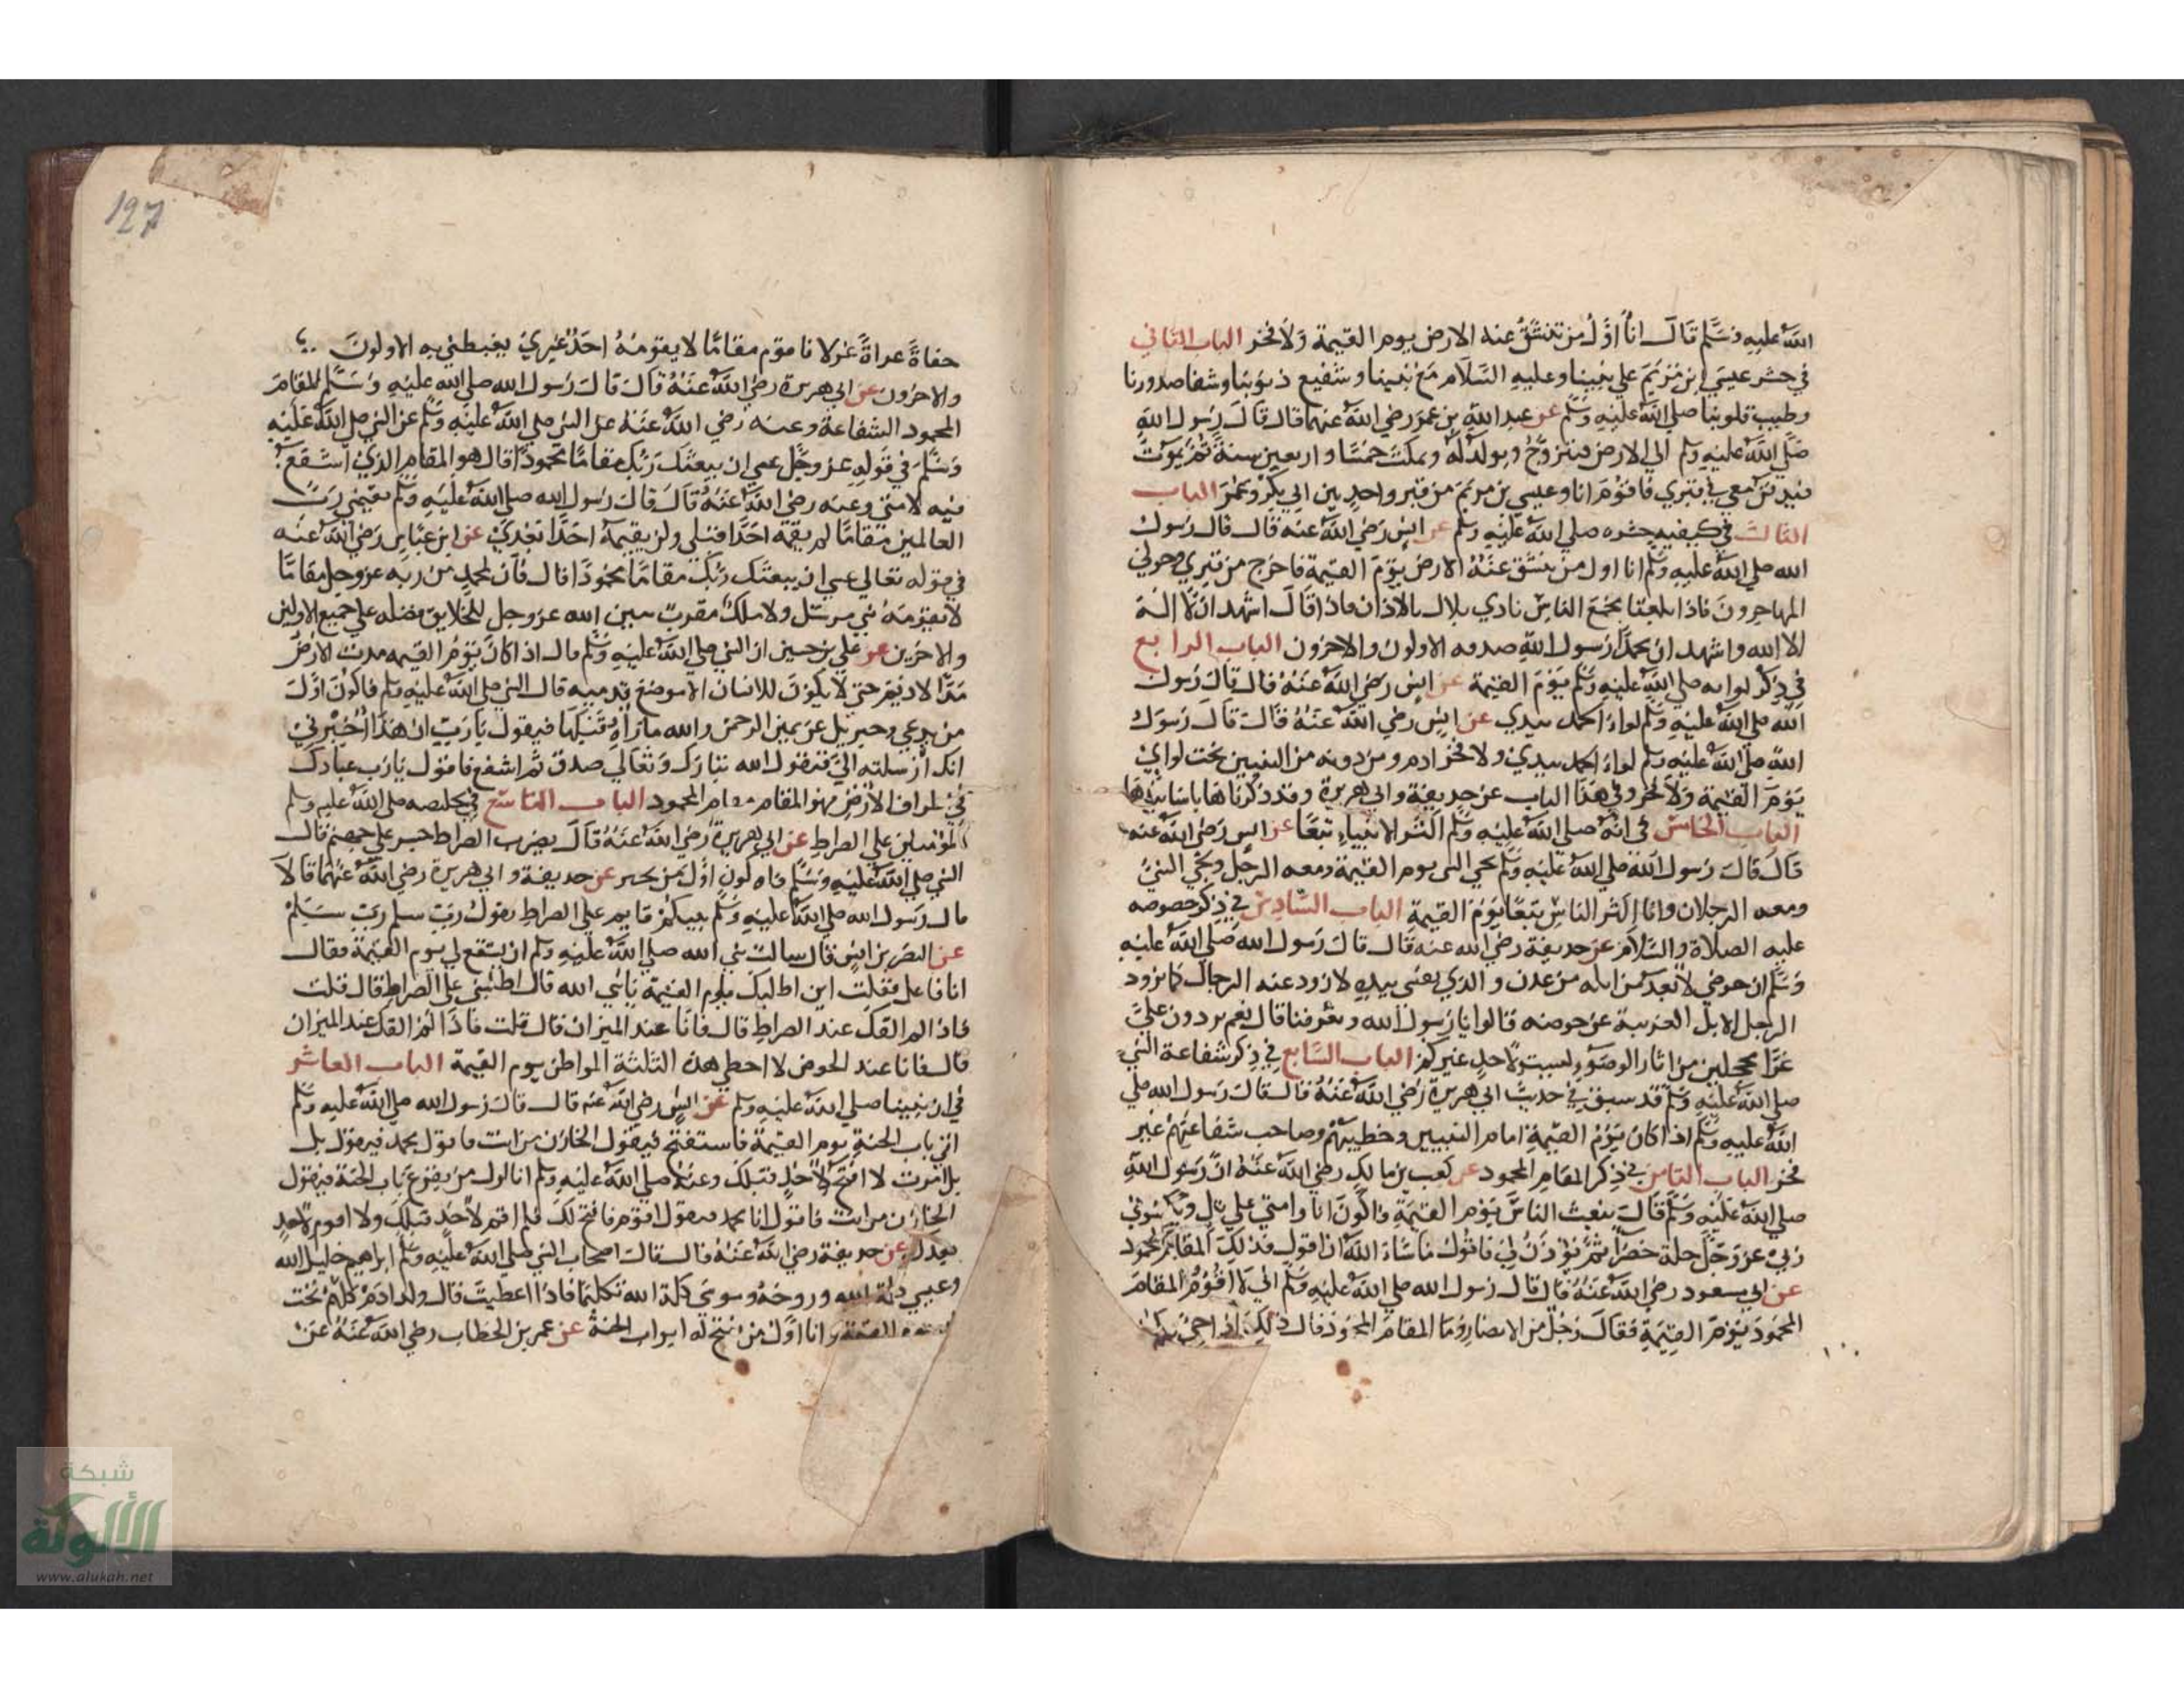 الله عليه وسلم قال انا اول من تنشق عنه الارض يوم القيمة ولا فخر الباب الثاني
في حشر عيسي ابن مريم علي نبينا وعليه السلام مع نبينا وشفيع ذنوبنا وشفا صدورنا
وطبيب قلوبنا صلي الله عليه وسلم عن عبد الله بن عمر رضي الله عنهما قال قال رسول الله
صلي الله عليه وسلم الي الارض فيتزوج ويولد له ويمكث خمسا واربعين سنة ثم يموت
فيدفن معي في قبري فاقوم انا وعيسي بن مريم من قبر واحد بين ابي بكر وعمر الباب
الثالث في كيفيه حشره صلي الله عليه وسلم عن انس رضي الله عنه قال قال رسول
الله صلي الله عليه وسلم انا اول من تنشق عنه الارض يوم القيمة فاخرج من قبري وحولي
المهاجرون فاذا بجمع الناس نادي بلال بالاذان فاذا قال اشهد ان لا اله
الا الله واشهد ان محمدا رسول الله صدقه الاولون والاخرون الباب الرابع
في ذكر لوايه صلي الله عليه وسلم يوم القيمة عن انس رضي الله عنه قال قال رسول
الله صلي الله عليه وسلم لواء الحمد بيدي عن انس رضي الله عنه قال قال رسول
الله صلي الله عليه وسلم لواء الحمد بيدي ولا فخر ادم ومن دونه من النبيين تحت لواي
يوم القيمة ولا فخر وفي هذا الباب عن حذيفة وابي هريرة وقد ذكرناها باسانيدها
الباب الخامس في انه صلي الله عليه وسلم اكثر الانبياء تبعا عن انس رضي الله عنه
قال قال رسول الله صلي الله عليه وسلم يجي النبي يوم القيمة ومعه الرجل ويجي النبي
ومعه الرجلان وانا اكثر الناس تبعا يوم القيمة الباب السادس في ذكر حوضه
عليه الصلاة والسلام عن حذيفة رضي الله عنه قال قال رسول الله صلي الله عليه
وسلم ان حوضي لابعد من ايله من عدن والذي نفسي بيده لاذود عنه الرجال كما يذود
الرجل الابل الغريبة عن حوضه قالوا يا رسول الله وتعرفنا قال نعم تردون علي
غرا محجلين من اثار الوضوء ليست لاحد غيركم الباب السابع في ذكر شفاعة النبي
صلي الله عليه وسلم قد سبق في حديث ابي هريرة رضي الله عنه قال قال رسول الله صلي
الله عليه وسلم اذا كان يوم القيمة امام النبيين وخطيبهم وصاحب شفاعتهم غير
فخر الباب الثامن في ذكر المقام المحمود عن كعب بن مالك رضي الله عنه ان رسول الله
صلي الله عليه وسلم قال يبعث الناس يوم القيمة فاكون انا وامتي علي تل ويكسوني
ربي عز وجل حلة خضرا ثم يؤذن لي فاقول ما شاء الله ان اقول فذلك المقام المحمود
عن ابي مسعود رضي الله عنه قال قال رسول الله صلي الله عليه وسلم اني لا اقوم المقام
المحمود يوم القيمة فقال رجل من الانصار وما المقام المحمود قال ذلك اذا جئ بكم
127
حفاة عراة غرلا فاقوم مقاما لا يقومه احد غيري يغبطني به الاولون
والاخرون عن ابي هريرة رضي الله عنه قال قال رسول الله صلي الله عليه وسلم المقام
المحمود الشفاعة وعنه رضي الله عنه عن النبي صلي الله عليه وسلم عن النبي صلي الله عليه
وسلم في قوله عز وجل عسي ان يبعثك ربك مقاما محمودا قال هو المقام الذي اشفع
فيه لامتي وعنه رضي الله عنه قال قال رسول الله صلي الله عليه وسلم يقيمني رب
العالمين مقاما لم يقمه احدا قبلي ولن يقيمه احدا بعدي عن ابن عباس رضي الله عنه
في قوله تعالي عسي ان يبعثك ربك مقاما محمودا قال فان لمحمد من ربه عز وجل مقاما
لا يقومه نبي مرسل ولا ملك مقرب يبين الله عز وجل للخلايق فضله علي جميع الاولين
والاخرين عن علي بن حسين ان النبي صلي الله عليه وسلم قال اذا كان يوم القيمه مدت الارض
مدا الاديم حتي لا يكون للانسان الا موضع قدميه قال النبي صلي الله عليه وسلم فاكون اول
من يدعي وجبريل عن يمين الرحمن والله ما رآه قبلها فيقول يا رب ان هذا اخبرني
انك ارسلته الي فيقول الله تبارك وتعالي صدق ثم اشفع فاقول يا رب عبادك
في اطراف الارض فهو المقام المحمود الباب التاسع في تخليصه صلي الله عليه وسلم
المؤمنين علي الصراط عن ابي هريرة رضي الله عنه قال يضرب الصراط جسر علي جهنم قال
النبي صلي الله عليه وسلم فاكون اول من يجيز عن حذيفة وابي هريرة رضي الله عنهما قالا
قال رسول الله صلي الله عليه وسلم نبيكم قايم علي الصراط يقول رب سلم رب سلم
عن النضر بن انس قال سالت نبي الله صلي الله عليه وسلم ان يشفع لي يوم القيمة فقال
انا فاعل فقلت اين اطلبك يوم القيمة يا نبي الله قال اطلبني علي الصراط قال قلت
فاذا لم القك عند الصراط قال فانا عند الميزان قال قلت فاذا لم القك عند الميزان
قال فانا عند الحوض لا اخطي هذه الثلثة المواطن يوم القيمة الباب العاشر
في ان نبينا صلي الله عليه وسلم عن انس رضي الله عنه قال قال رسول الله صلي الله عليه وسلم
اتي باب الجنة يوم القيمة فاستفتح فيقول الخازن من انت فاقول محمد فيقول بك
بك امرت لا افتح لاحد قبلك وعنه صلي الله عليه وسلم انا اول من يقرع باب الجنة فيقول
الخازن من انت فاقول انا محمد فيقول اقوم فافتح لك فلم اقم لاحد قبلك ولا اقوم لاحد
بعدك عن حذيفة رضي الله عنه قال قالت اصحاب النبي صلي الله عليه وسلم ابراهيم خليل الله
وعيسي كلمة الله وروحه وموسي كلمه الله تكليما فماذا اعطيت قال ولد ادم كلهم تحت
القيمة وانا اول من تفتح له ابواب الجنة عن عمر بن الخطاب رضي الله عنه عن
شبكة
الألوكة
www.alukah.net